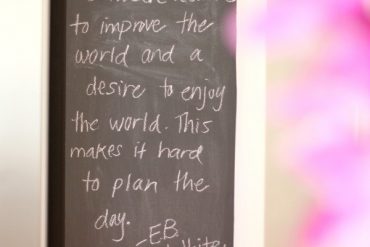 to improve the
world and a
desire to enjoy
the world. This
makes it hard
to plan the
day.
EB